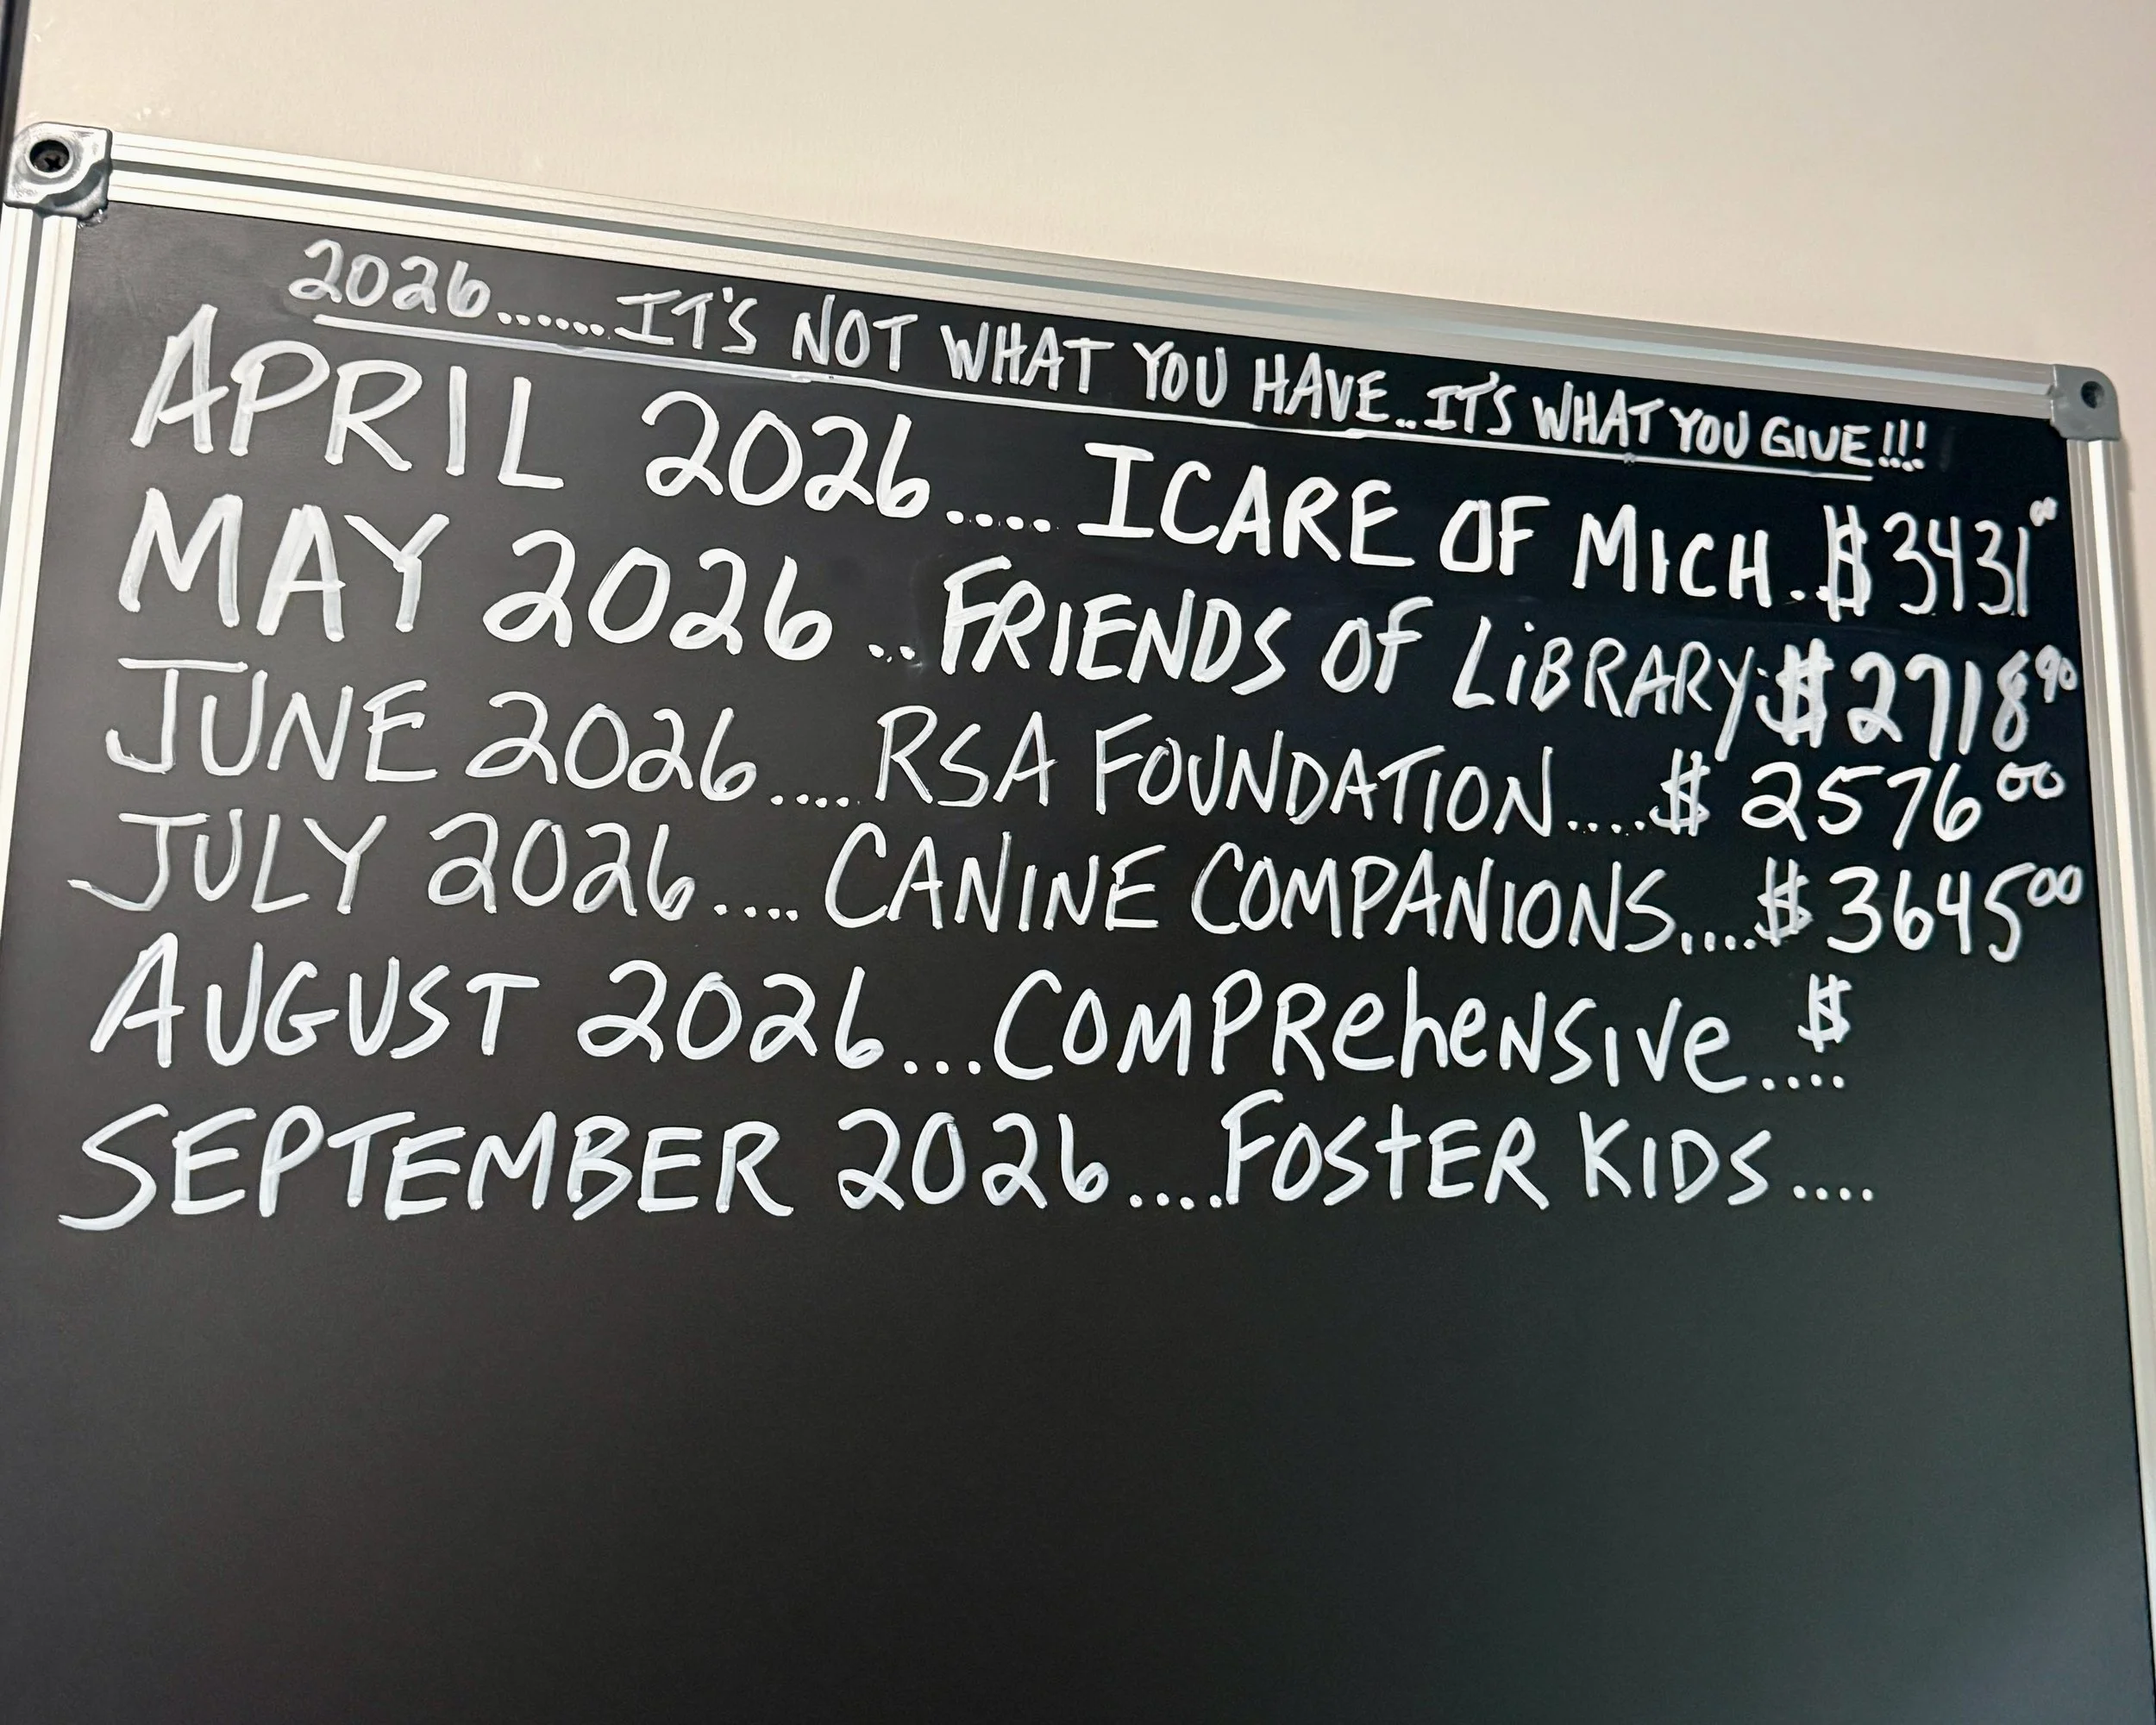 2026.......IT'S NOT WHAT YOU HAVE..IT'S WHAT YOU GIVE!!!
APRIL 2026.... ICARE OF MICH..$3431 00
MAY 2026...FRIENDS OF LiBRARY:$2718 90
JUNE 2026....RSA FOUNDATION....$ 2576 00
JULY 2026.... CANINE COMPANIONS....$3645 00
AUGUST 2026...COMPReheNSIVe....$
SEPTEMBER 2026....FOStER KIDS....